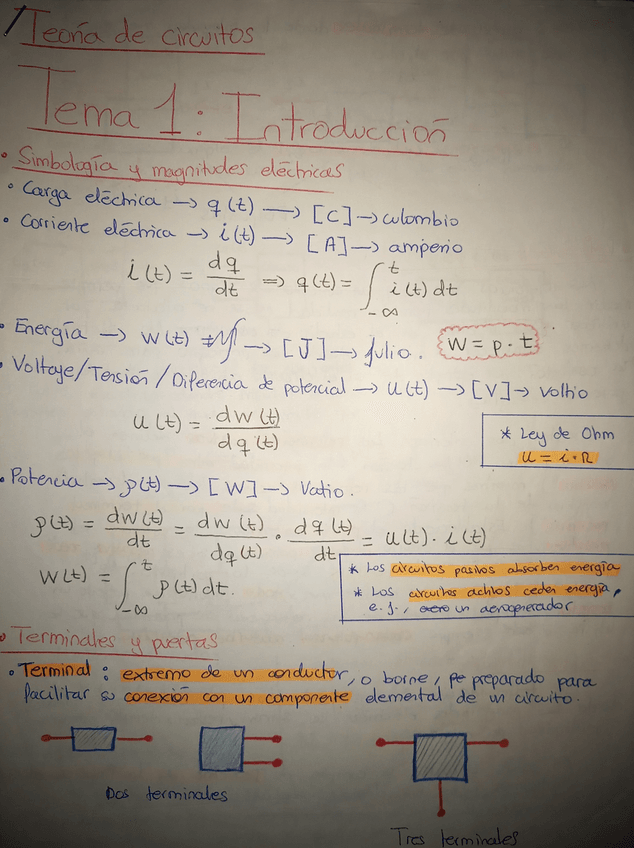 Teoría de circuitos
Tema 1: Introducción
• Simbología y magnitudes eléctricas
• Carga eléctrica → q(t) → [C] → culombio
• Corriente eléctrica → i(t) → [A] → amperio
i(t) = dq/dt ⇒ q(t) = ∫_{-∞}^{t} i(t) dt
• Energía → w(t) → [J] → julio.
W = p · t
• Voltaje/Tensión/Diferencia de potencial → u(t) → [V] → voltio
u(t) = dw(t)/dq(t)
* Ley de Ohm
u = i · R
• Potencia → p(t) → [W] → Vatio.
p(t) = dw(t)/dt = dw(t)/dq(t) · dq(t)/dt = u(t) · i(t)
w(t) = ∫_{-∞}^{t} p(t) dt.
* Los circuitos pasivos absorben energía
* Los circuitos activos ceden energía,
e.j., un aerogenerador
• Terminales y puertas
• Terminal: extremo de un conductor, o borne, preparado para
facilitar su conexión con un componente elemental de un circuito.
Dos terminales
Tres terminales